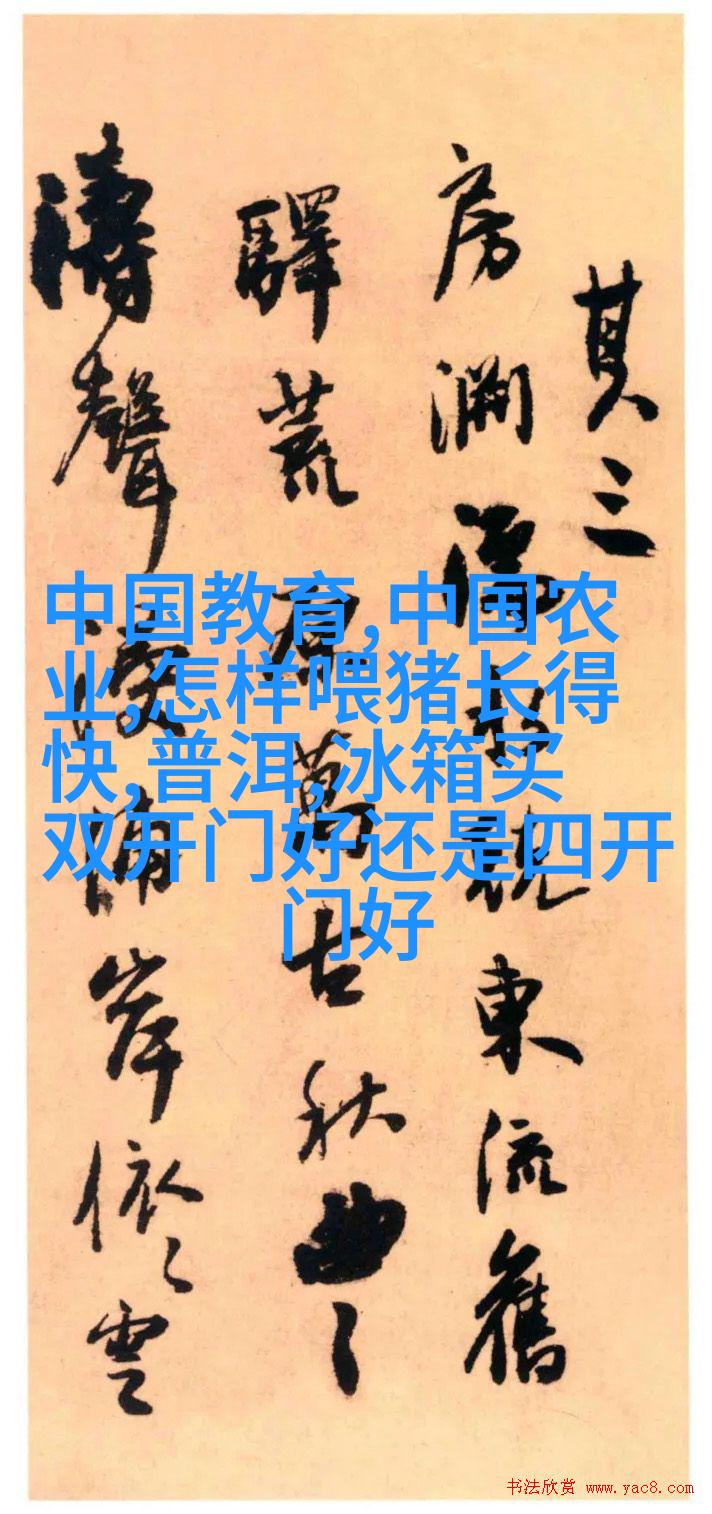 其三
房澗
東流舊
驛荒原萬古秋曲〻
濤聲
浦岸依〻雲
中国教育,中国农
业,怎样喂猪长得
快,普洱,冰箱买
双开门好还是四开
门好
书法欣赏 www.yac8.com